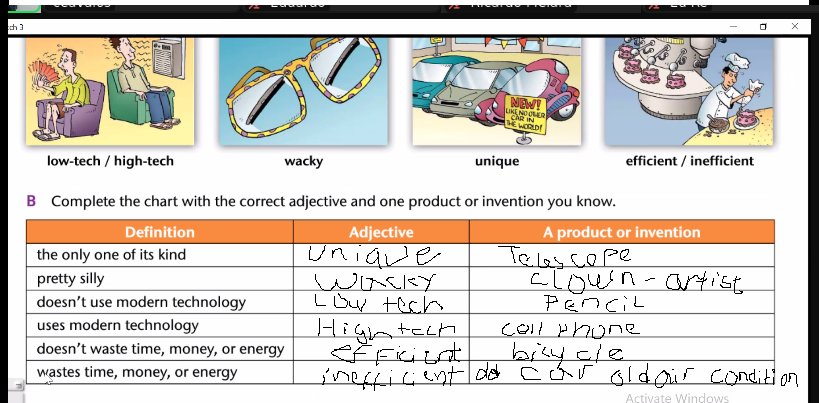 ch 3
low-tech / high-tech
wacky
NEW!
LIKE NO OTHER
CAR IN
THE WORLD!
unique
efficient / inefficient
B Complete the chart with the correct adjective and one product or invention you know.
Definition Adjective A product or invention
the only one of its kind Unique Telescope
pretty silly Wacky Clown-artist
doesn't use modern technology Low tech Pencil
uses modern technology High tech cell phone
doesn't waste time, money, or energy efficient bicycle
wastes time, money, or energy inefficient car old air condition
Activate Windows